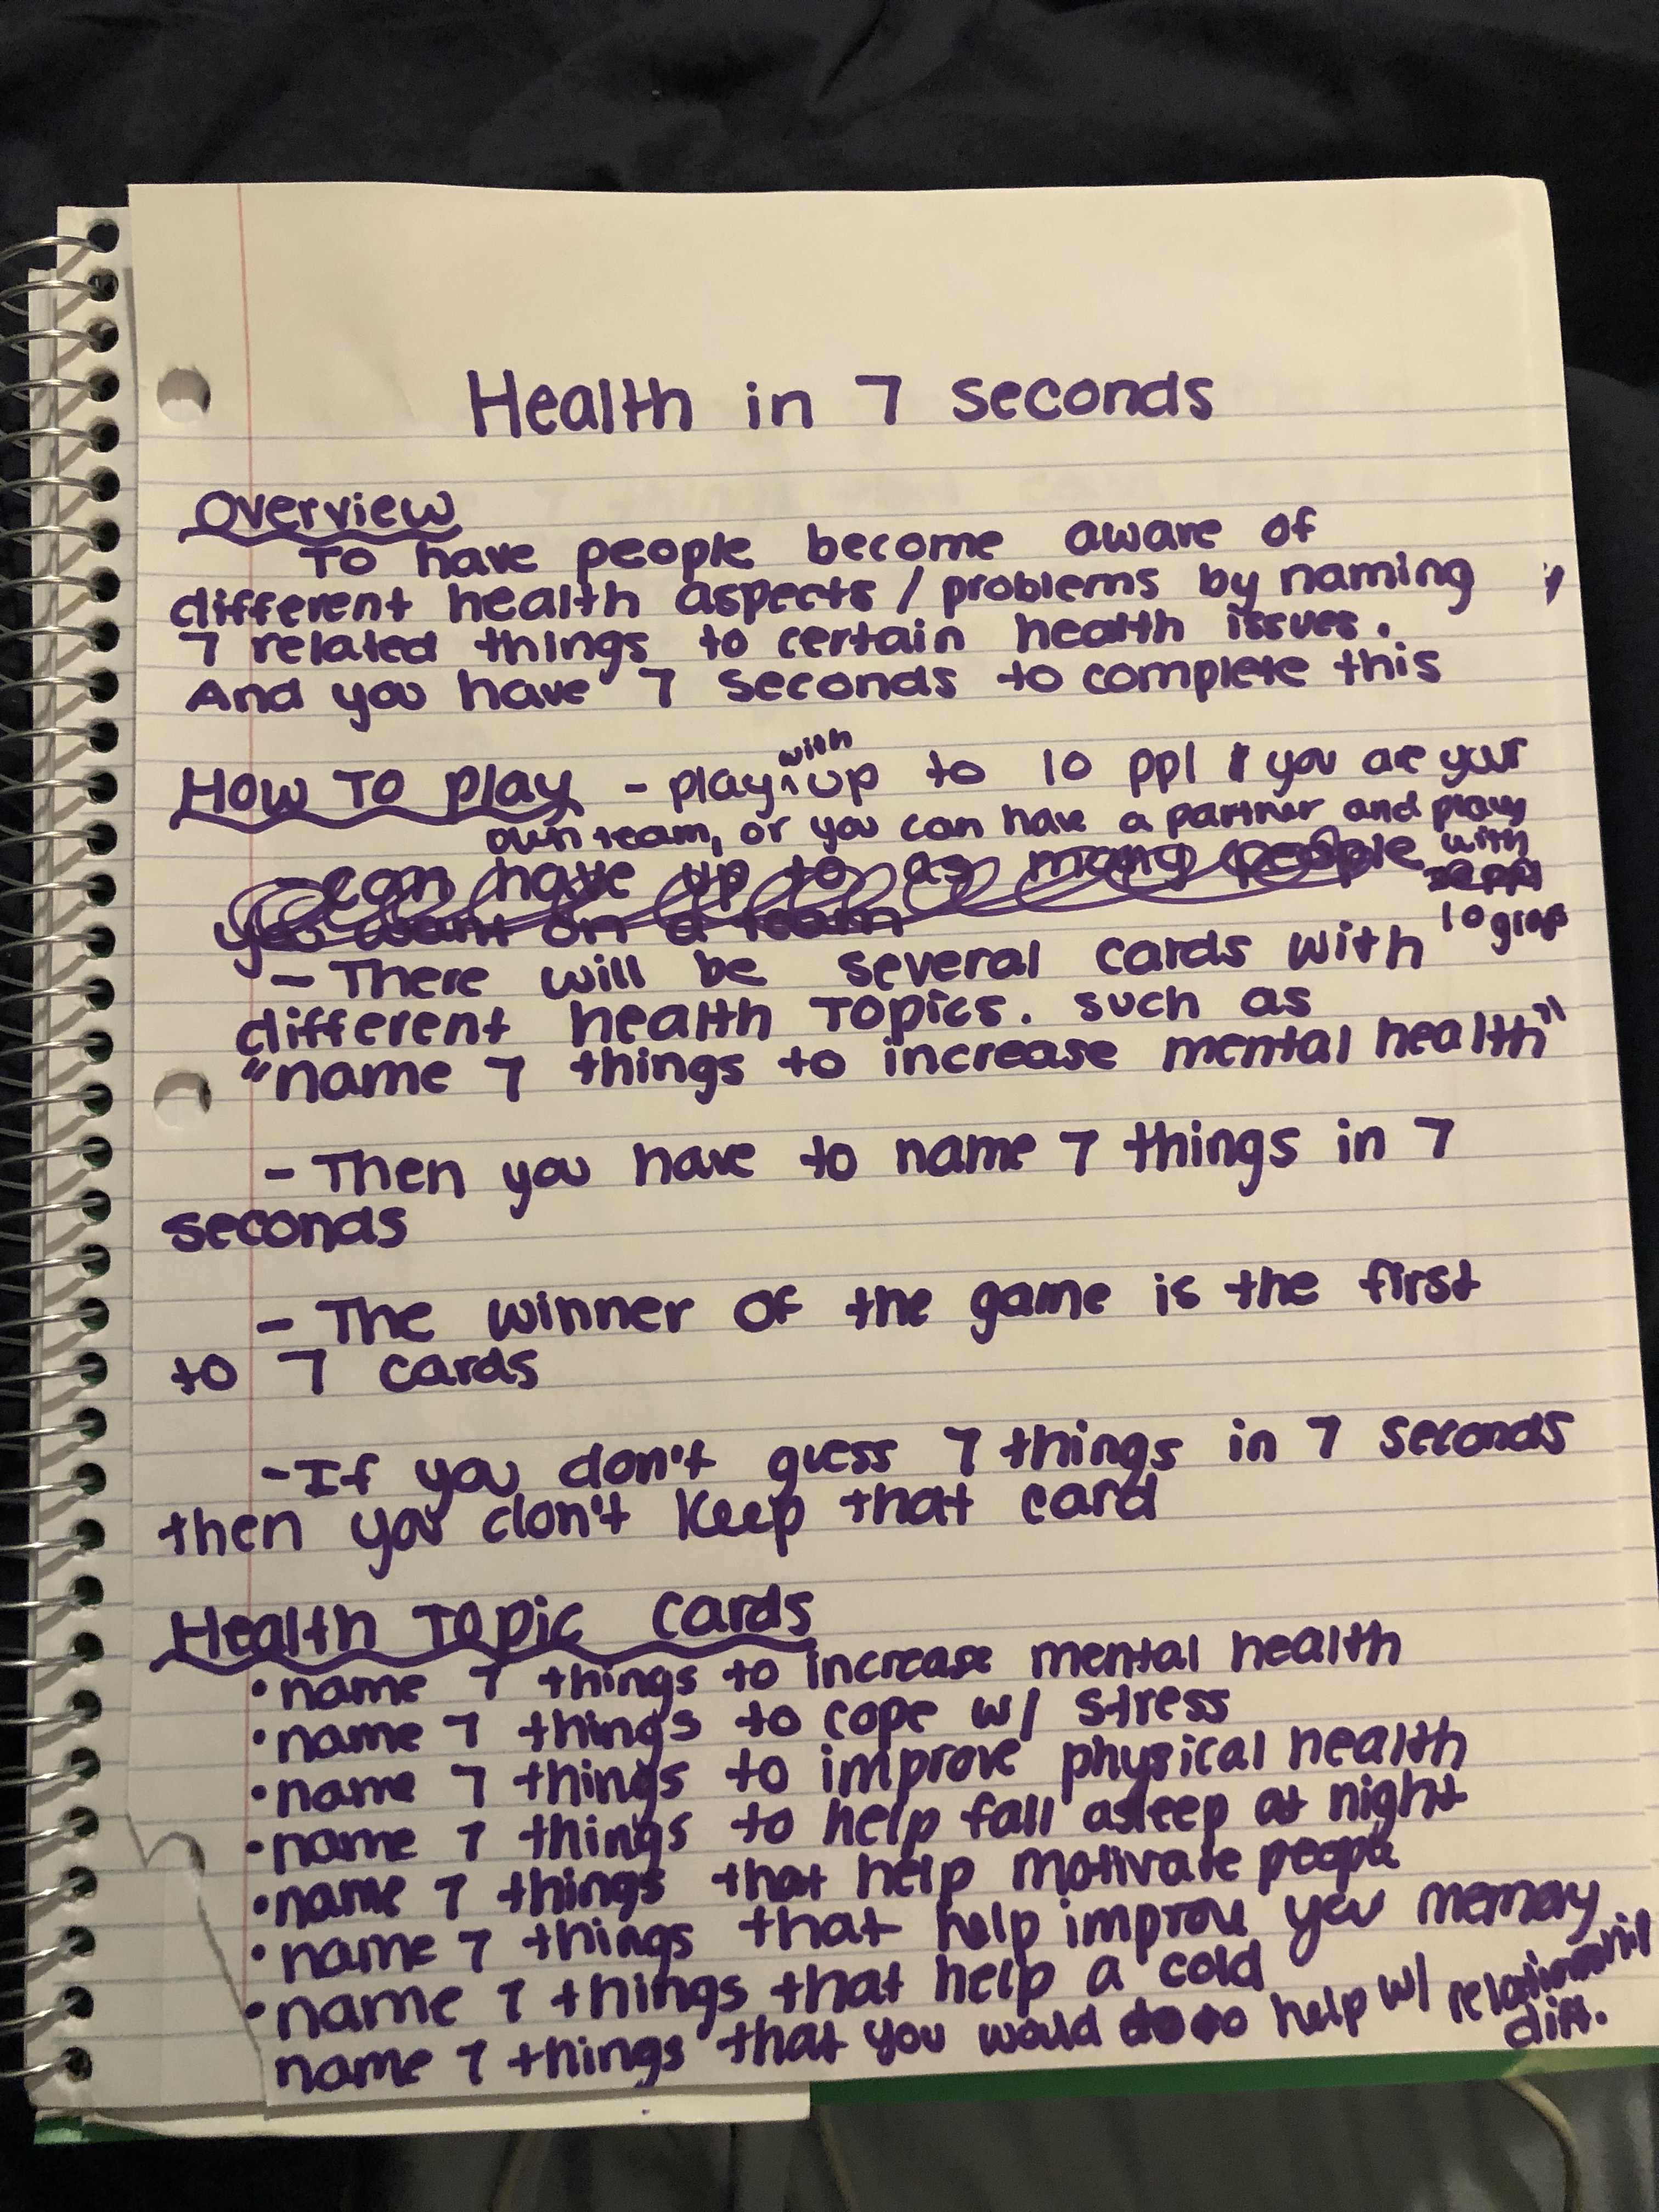 Health in 7 seconds
Overview
To have people become aware of
different health aspects / problems by naming
7 related things to certain health issues.
And you have 7 seconds to complete this
How To play - play with up to 10 ppl & you are your
own team, or you can have a partner and play
with
- can have up to as many people
you want on a team
10 grops
- There will be several cards with
different health Topics. such as
"name 7 things to increase mental health"
- Then you have to name 7 things in 7
seconds
- The winner of the game is the first
to 7 cards
- If you don't guess 7 things in 7 seconds
then you don't keep that card
Health Topic Cards
• name 7 things to increase mental health
• name 7 things to cope w/ stress
• name 7 things to improve physical health
• name 7 things to help fall asleep at night
• name 7 things that help motivate people
• name 7 things that help improve your memory
• name 7 things that help a cold
name 7 things that you would do to help w/
diff.